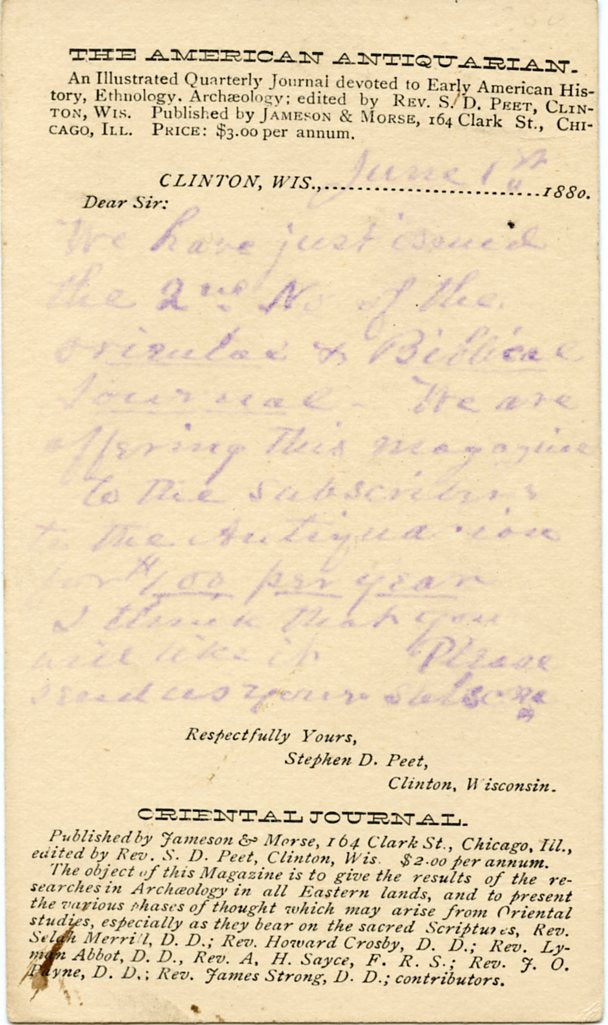 THE AMERICAN ANTIQUARIAN.
An Illustrated Quarterly Journal devoted to Early American His-
tory, Ethnology, Archæology; edited by REV. S. D. PEET, CLIN-
TON, WIS. Published by JAMESON & MORSE, 164 Clark St., CHI-
CAGO, ILL. PRICE: $3.00 per annum.
CLINTON, WIS., June 1st 1880.
Dear Sir:
We have just issued
the 2nd No of the
Oriental & Biblical
Journal - We are
offering this magazine
to the subscribers
to the Antiquarian
for $1.00 per year
I think that you
will like it Please
send us your
Respectfully Yours,
Stephen D. Peet,
Clinton, Wisconsin.
ORIENTAL JOURNAL.
Published by Jameson & Morse, 164 Clark St., Chicago, Ill.,
edited by Rev. S. D. Peet, Clinton, Wis. $2.00 per annum.
The object of this Magazine is to give the results of the re-
searches in Archæology in all Eastern lands, and to present
the various phases of thought which may arise from Oriental
studies, especially as they bear on the sacred Scriptures, Rev.
Selah Merrill, D. D.; Rev. Howard Crosby, D. D.; Rev. Ly-
man Abbot, D. D., Rev. A. H. Sayce, F. R. S.; Rev. J. O.
Payne, D. D.; Rev. James Strong, D. D.; contributors.